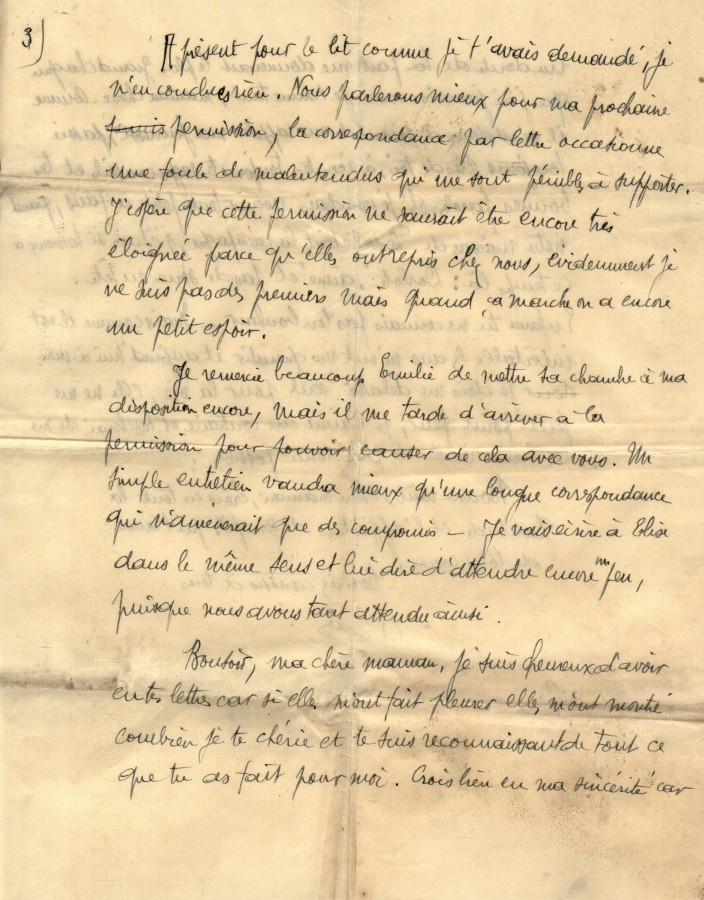 3)
A présent pour le lit comme je t'avais demandé, je
n'en conclues rien. Nous parlerons mieux pour ma prochaine
permission, la correspondance par lettre occasionne
une foule de malentendus qui me sont pénibles à supporter.
J'espère que cette permission ne saurait être encore très
éloignée parce qu'elles ont repris chez nous, évidemment je
ne suis pas des premiers mais quand ça marche on a encore
un petit espoir.
Je remercie beaucoup Emilie de mettre sa chambre à ma
disposition encore, mais il me tarde d'arriver à la
permission pour pouvoir causer de cela avec vous. Un
simple entretien vaudra mieux qu'une longue correspondance
qui n'amènerait que des compromis — Je vais écrire à Elise
dans le même sens et lui dire d'attendre encore un peu,
puisque nous avons tant attendu ainsi.
Bonsoir, ma chère maman, je suis heureux d'avoir
eu tes lettres car si elles m'ont fait pleurer elles m'ont montré
combien je te chérie et te suis reconnaissant de tout ce
que tu as fait pour moi. Crois bien en ma sincérité car